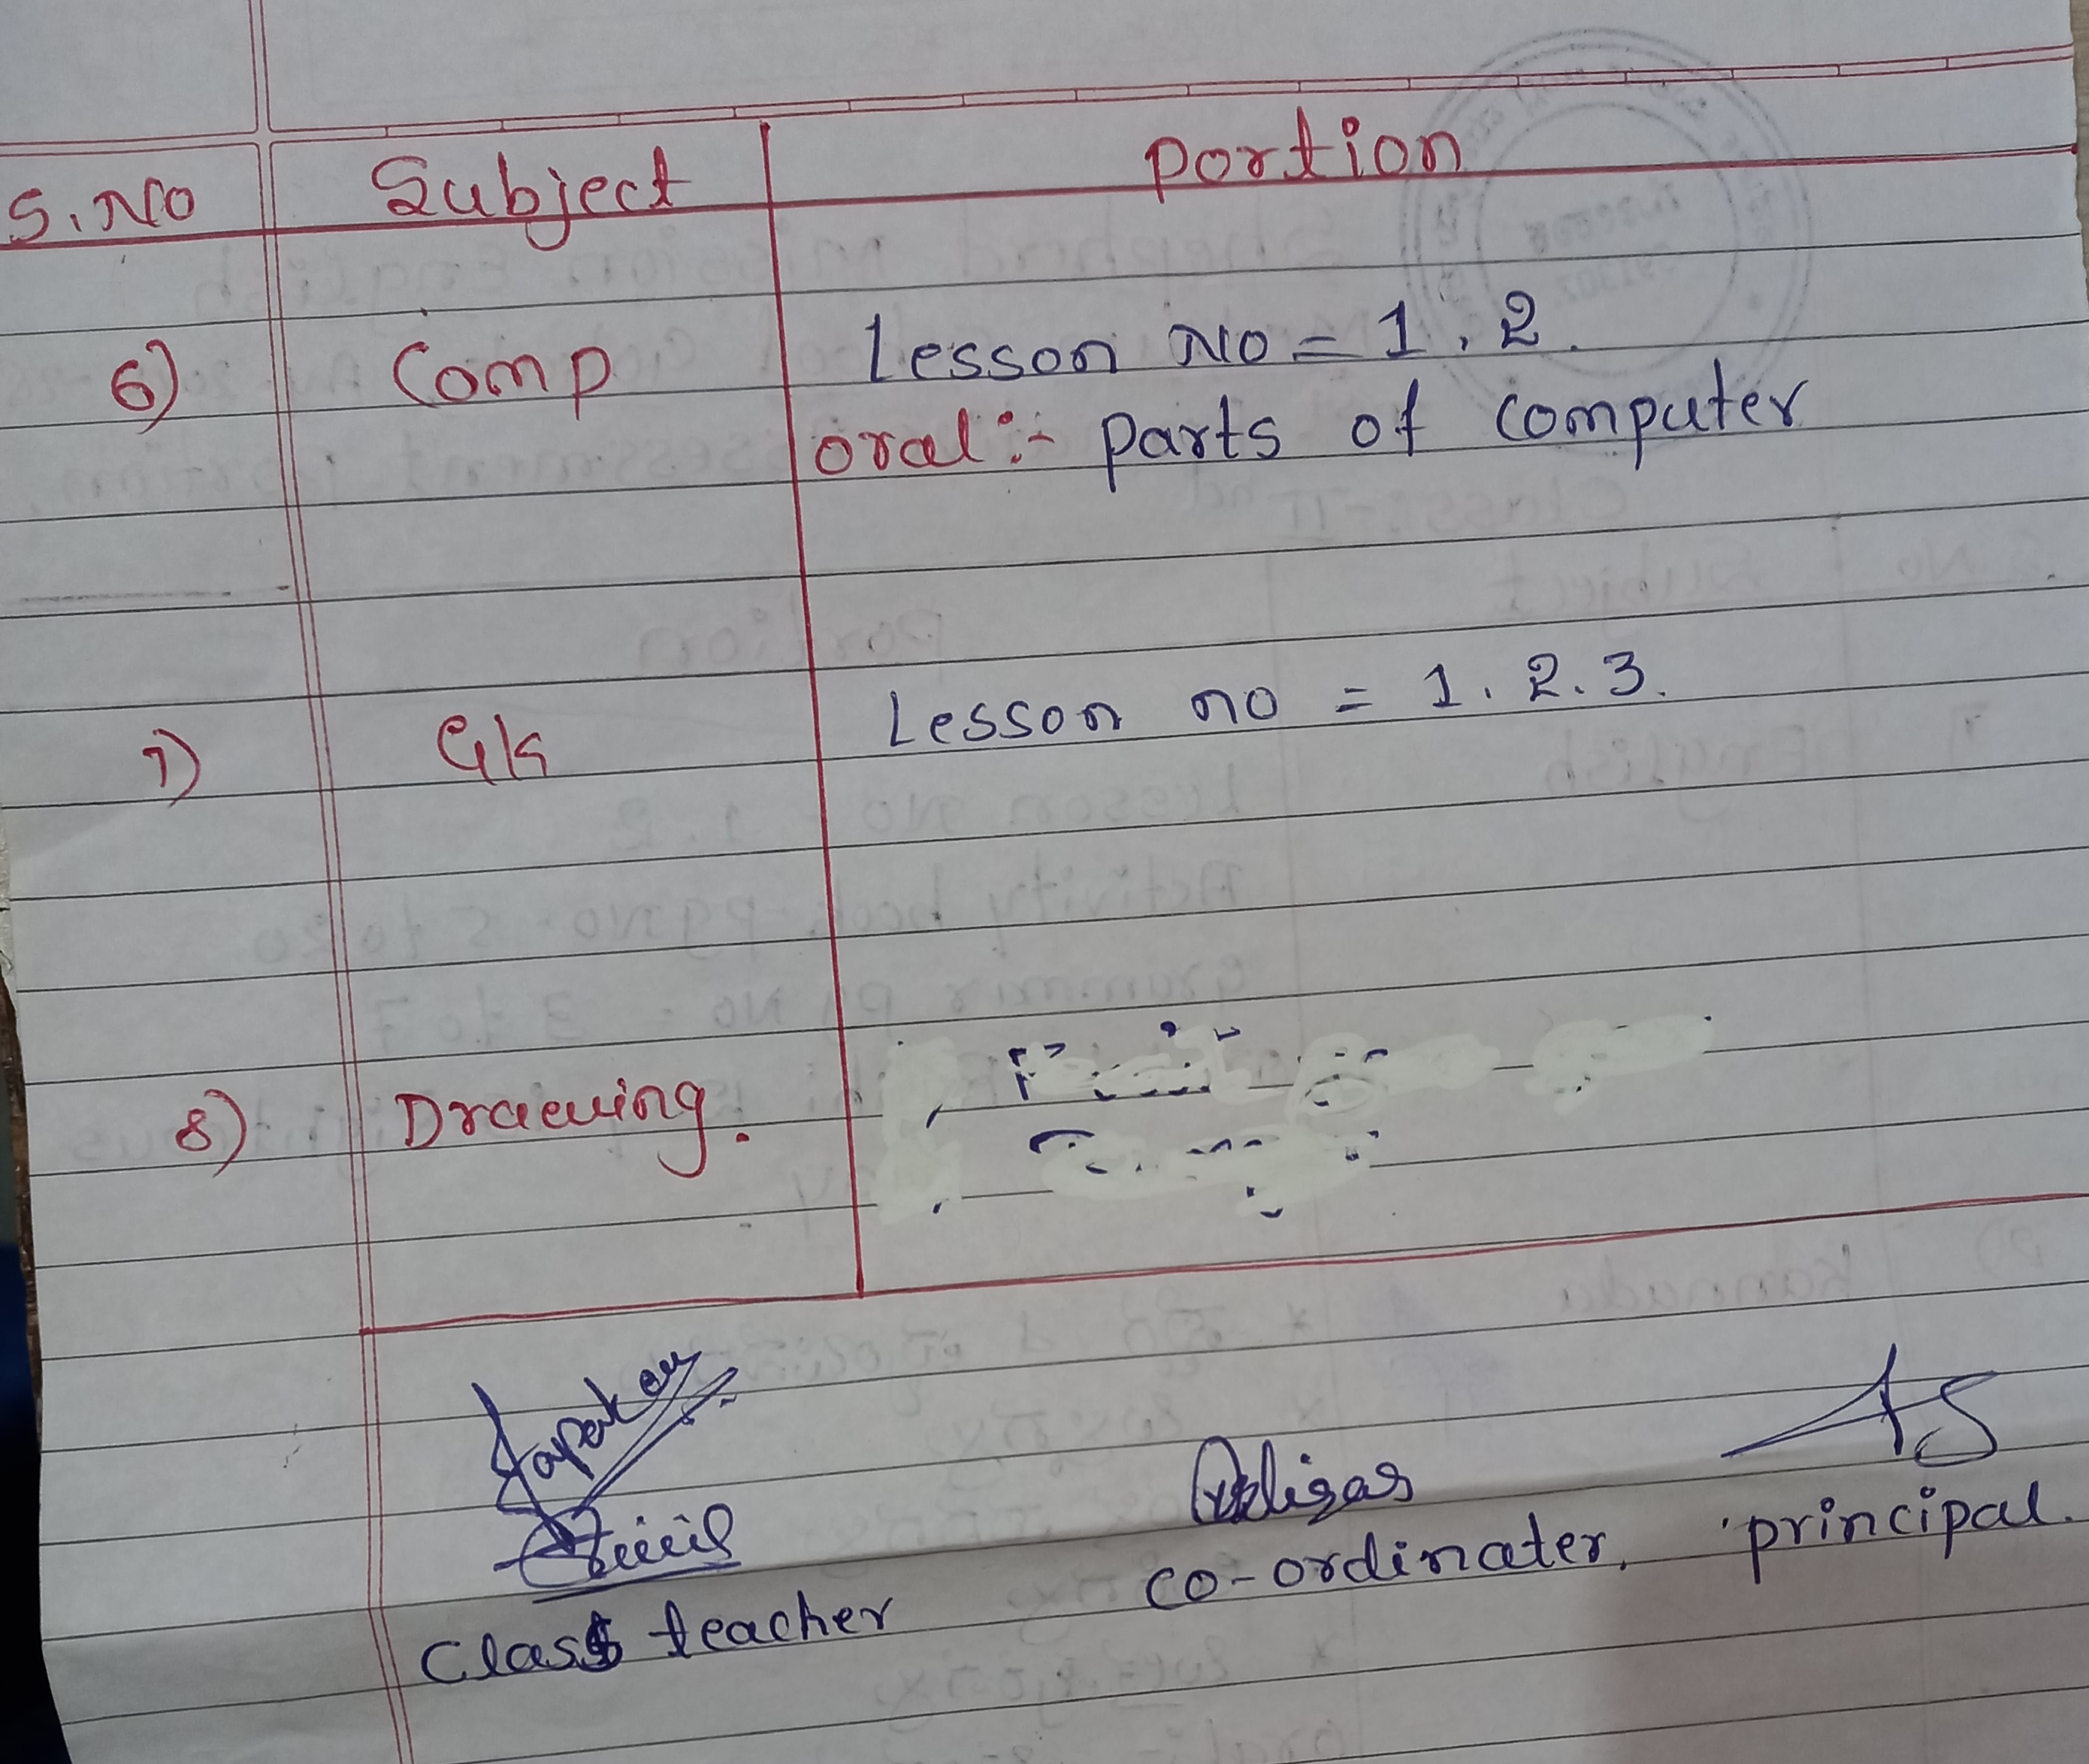 S.No Subject portion
6) Comp Lesson No = 1, 2.
oral :- parts of computer
7) GK Lesson no = 1. 2. 3.
8) Drawing.
class teacher co-ordinater, principal.